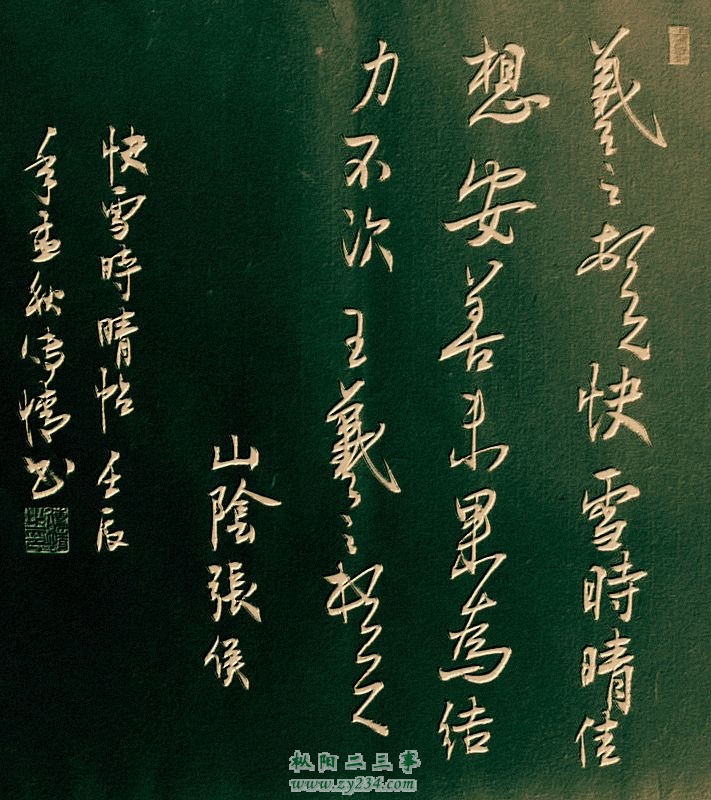 羲之頓首快雪時晴佳
想安善未果為結
力不次王羲之頓首
山陰張侯
快雪時晴帖壬辰
年孟秋傳情书
枞阳二三事
www.zy234.com